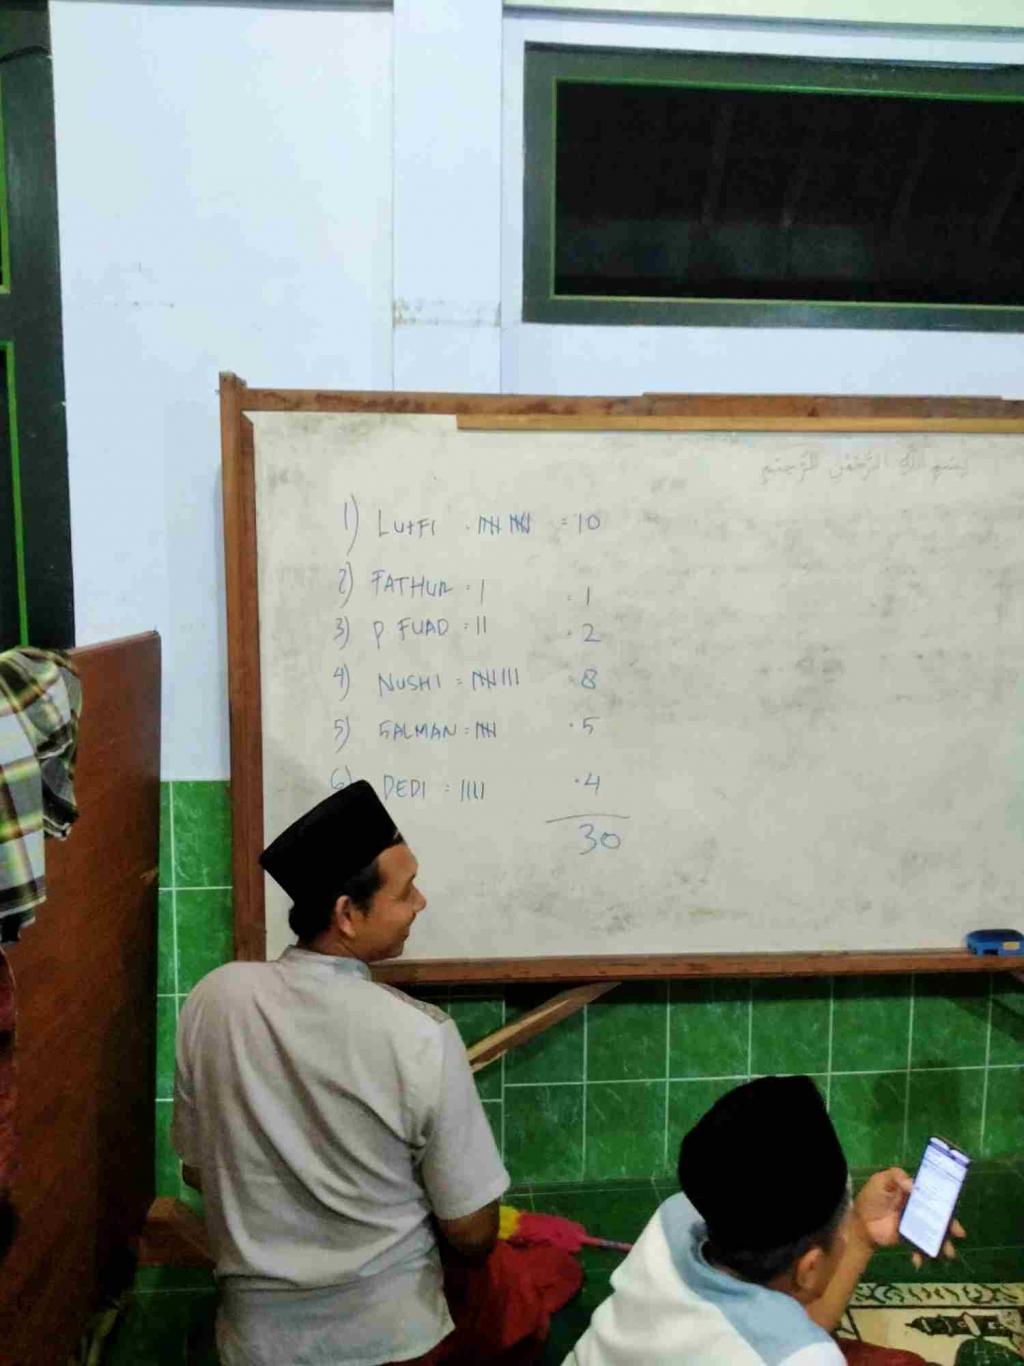 بِسْمِ اللهِ الرَّحْمٰنِ الرَّحِيْمِ
1) LUTFI . 卌 卌 = 10
2) FATHUR : | : 1
3) P FUAD : || : 2
4) NUSHI = 卌 ||| : 8
5) SALMAN : 卌 : 5
6) DEDI : |||| : 4
30